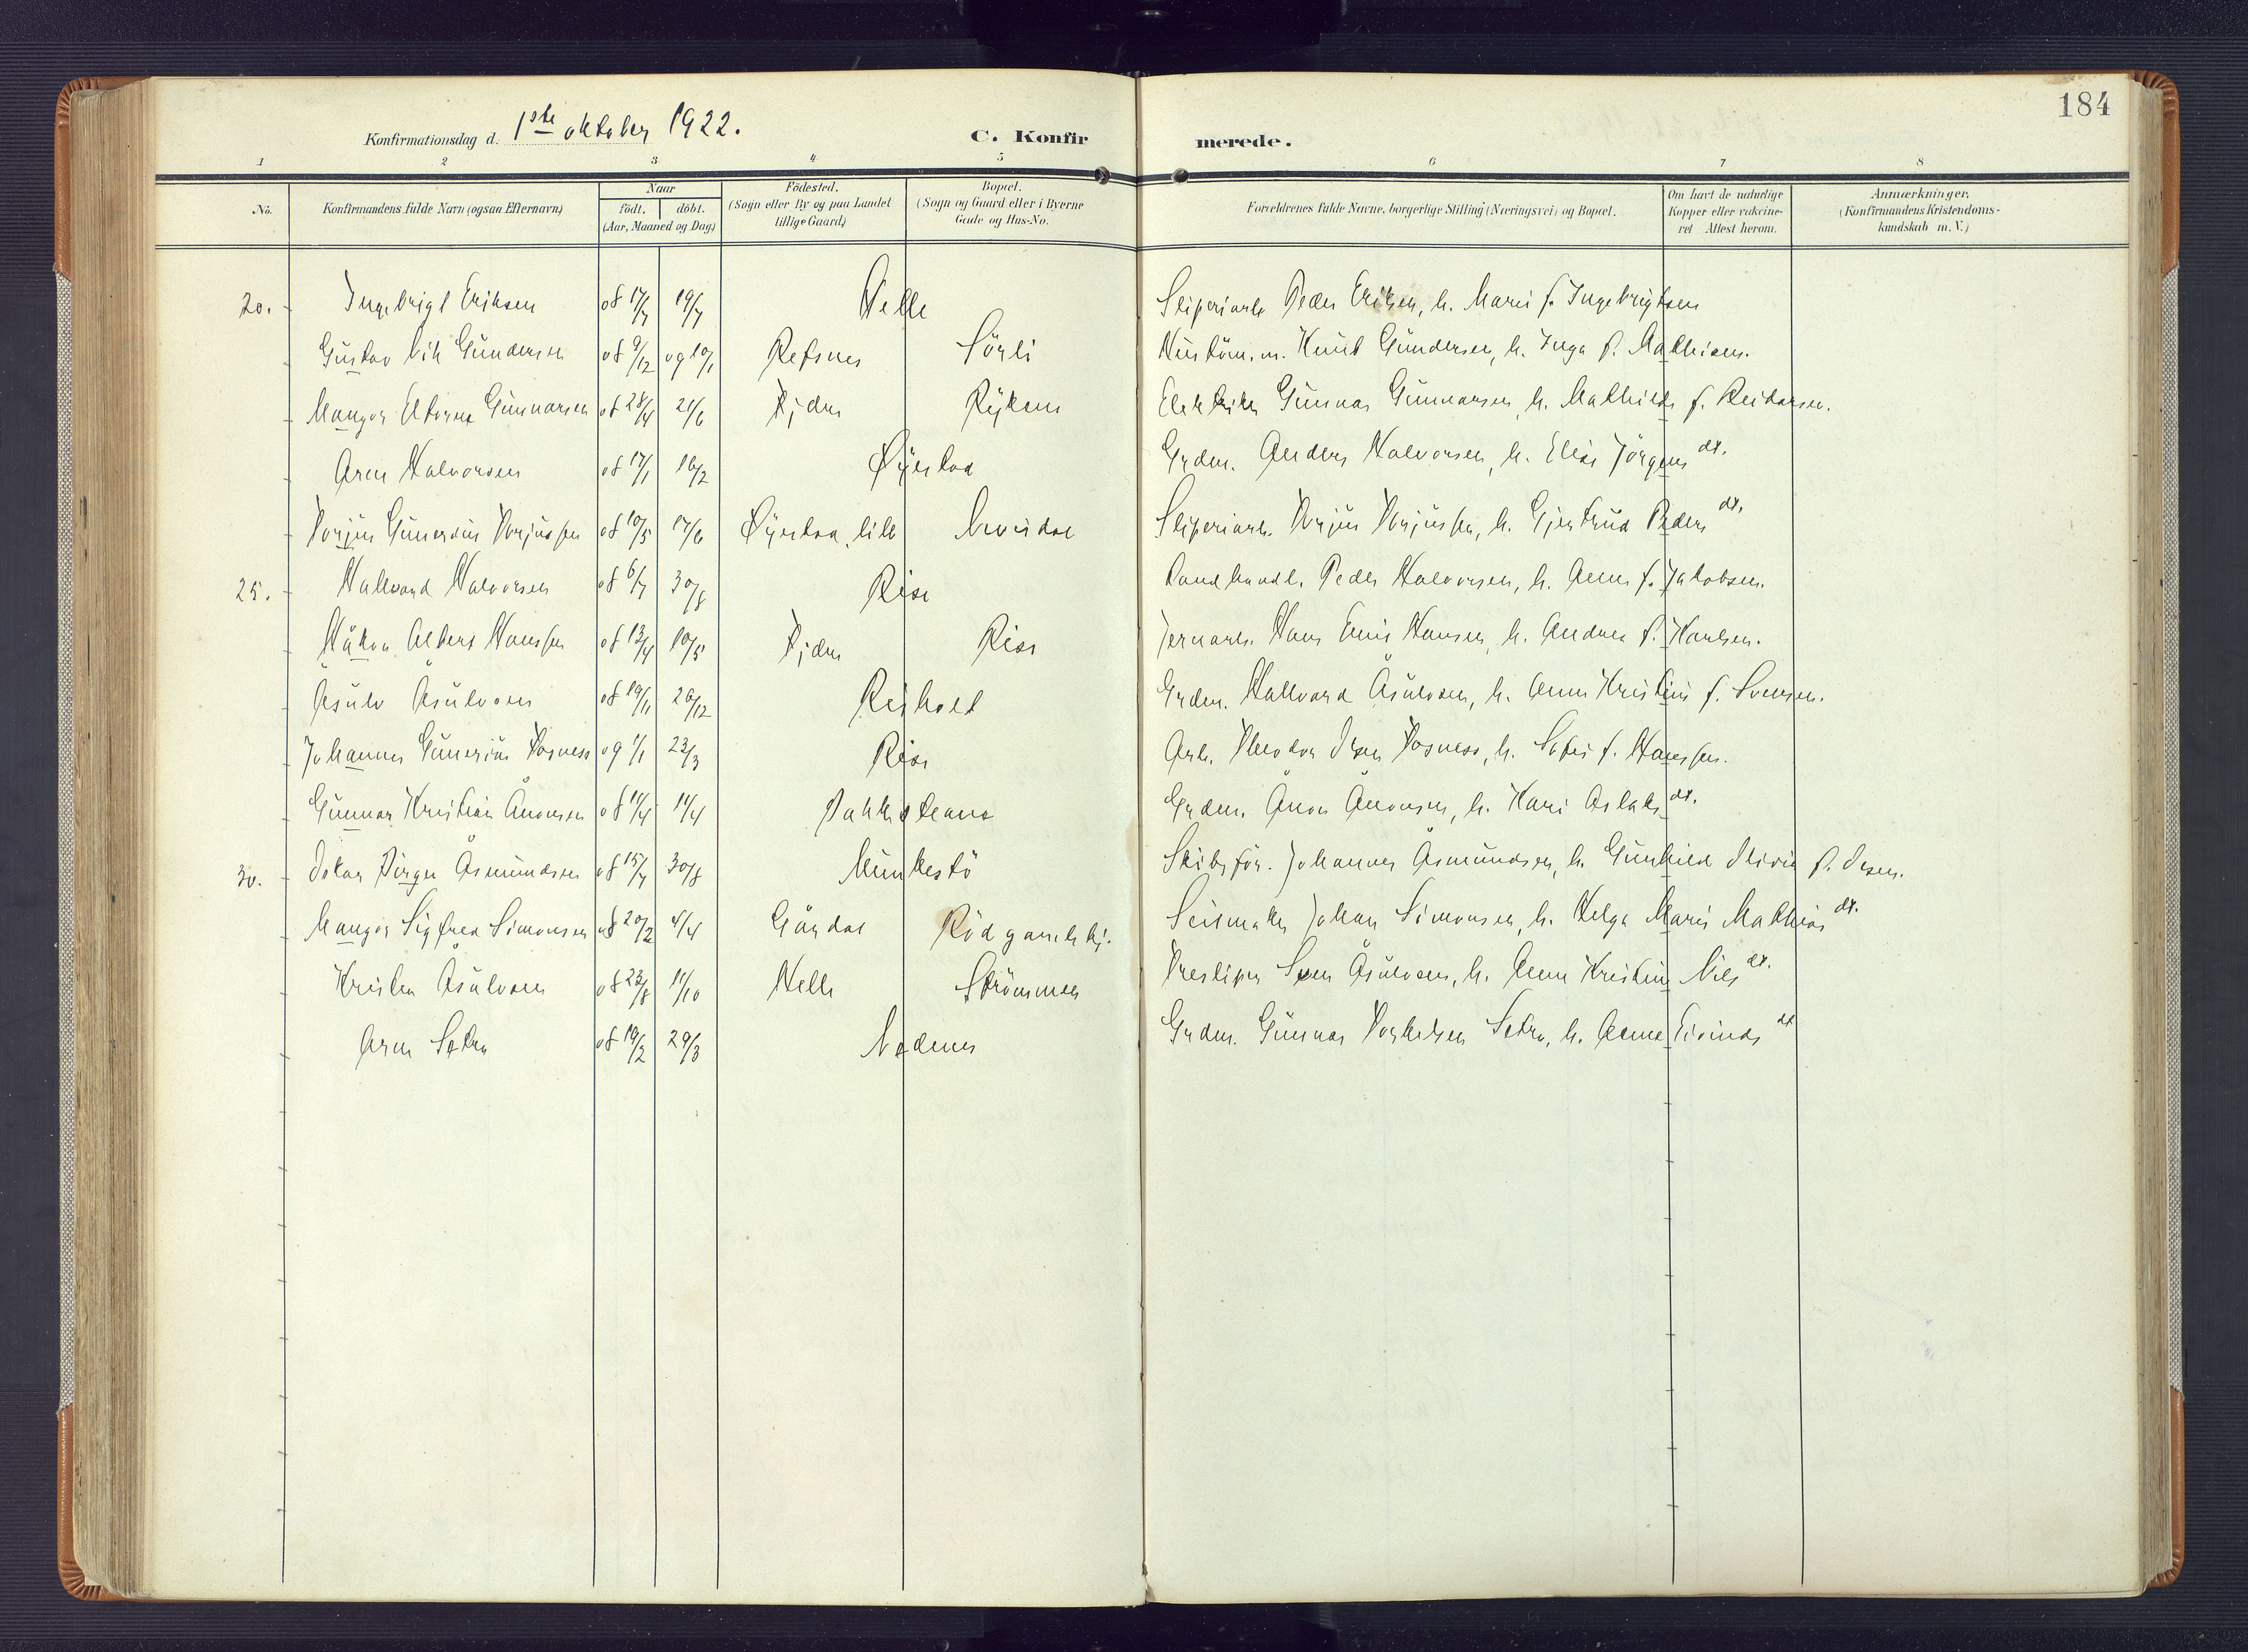 184
Konfirmationsdag d. 1ste oktober 1922.
C. Konfirmerede.
1 2 3 4 5 6 7 8
No. Konfirmandens fulde Navn (ogsaa Efternavn) Naar födt. döbt. (Aar, Maaned og Dag) Födested. (Sogn eller By og paa Landet tillige Gaard) Bopæl. (Sogn og Gaard eller i Byerne Gade og Hus-No. Forældrenes fulde Navne, borgerlige Stilling (Næringsvei) og Bopæl. Om havt de naturlige Kopper eller vakcineret Attest herom. Anmærkninger, (Konfirmandens Kristendomskundskab m.V.)
20. Ingebrigt Eriksen 08 17/7 19/7 Helle Sliperiarb. Peder Eriksen, h. Marie f. Ingebrigtsen
Gustav Gundersen 08 9/12 09 10/1 Refsnes Sörli Knut Gundersen, h. Inga f. Mathisen.
Mangor Gunnarsen 08 28/4 21/6 Rykene Elektriker Gunnar Gunnarsen, h. Mathilde f. Reidarsen.
Arne Halvorsen 08 17/1 16/2 Øyestad Grdm. Anders Halvorsen, h. Elise Jörgens dt.
Torjus Gunerius Torjussen 08 10/5 17/6 Øyestad, lille Sliperiarb. Torjus Torjussen, h. Gjertrud Peders dt.
25. Hallvard Halvorsen 08 6/7 30/8 Rise Landhandl. Peder Halvorsen, h. Anne f. Jakobsen.
Håkon Albert Hanssen 08 13/4 10/5 Rise Jernarb. Hans Emil Hansen, h. Andrea f. Karlsen.
Åsulv Åsulvsen 08 19/11 26/12 Risholt Grdm. Hallvard Åsulvsen, h. Anne Kristine f. Svensen.
Johannes Gunerius Vosness 09 1/1 23/3 Rise Arb. Theodor Olsen Vosness, h. Sofie f. Hanssen.
Gunnar Kristian Ånonsen 08 11/4 Grdm. Ånon Ånonsen, h. Kari Aslaks dt.
30. Oskar Birger Åsmundsen 08 15/7 30/8 Munkestö Skibsför. Johannes Åsmundsen, h. Gunhild Olivie f. Olsen.
Mangor Sigfred Simonsen 08 20/2 4/4 Gårdal Seilmaker Johan Simonsen, h. Helga Marie Mathias dt.
Kristen Åsulvsen 08 23/8 11/10 Helle Strömmen Tresliper Sven Åsulvsen, h. Anne Kristine Nils dt.
Arne Setra 08 19/2 29/3 Nedenes Grdm. Gunnar Torkelsen Setra, h. Anne Eivinds dt